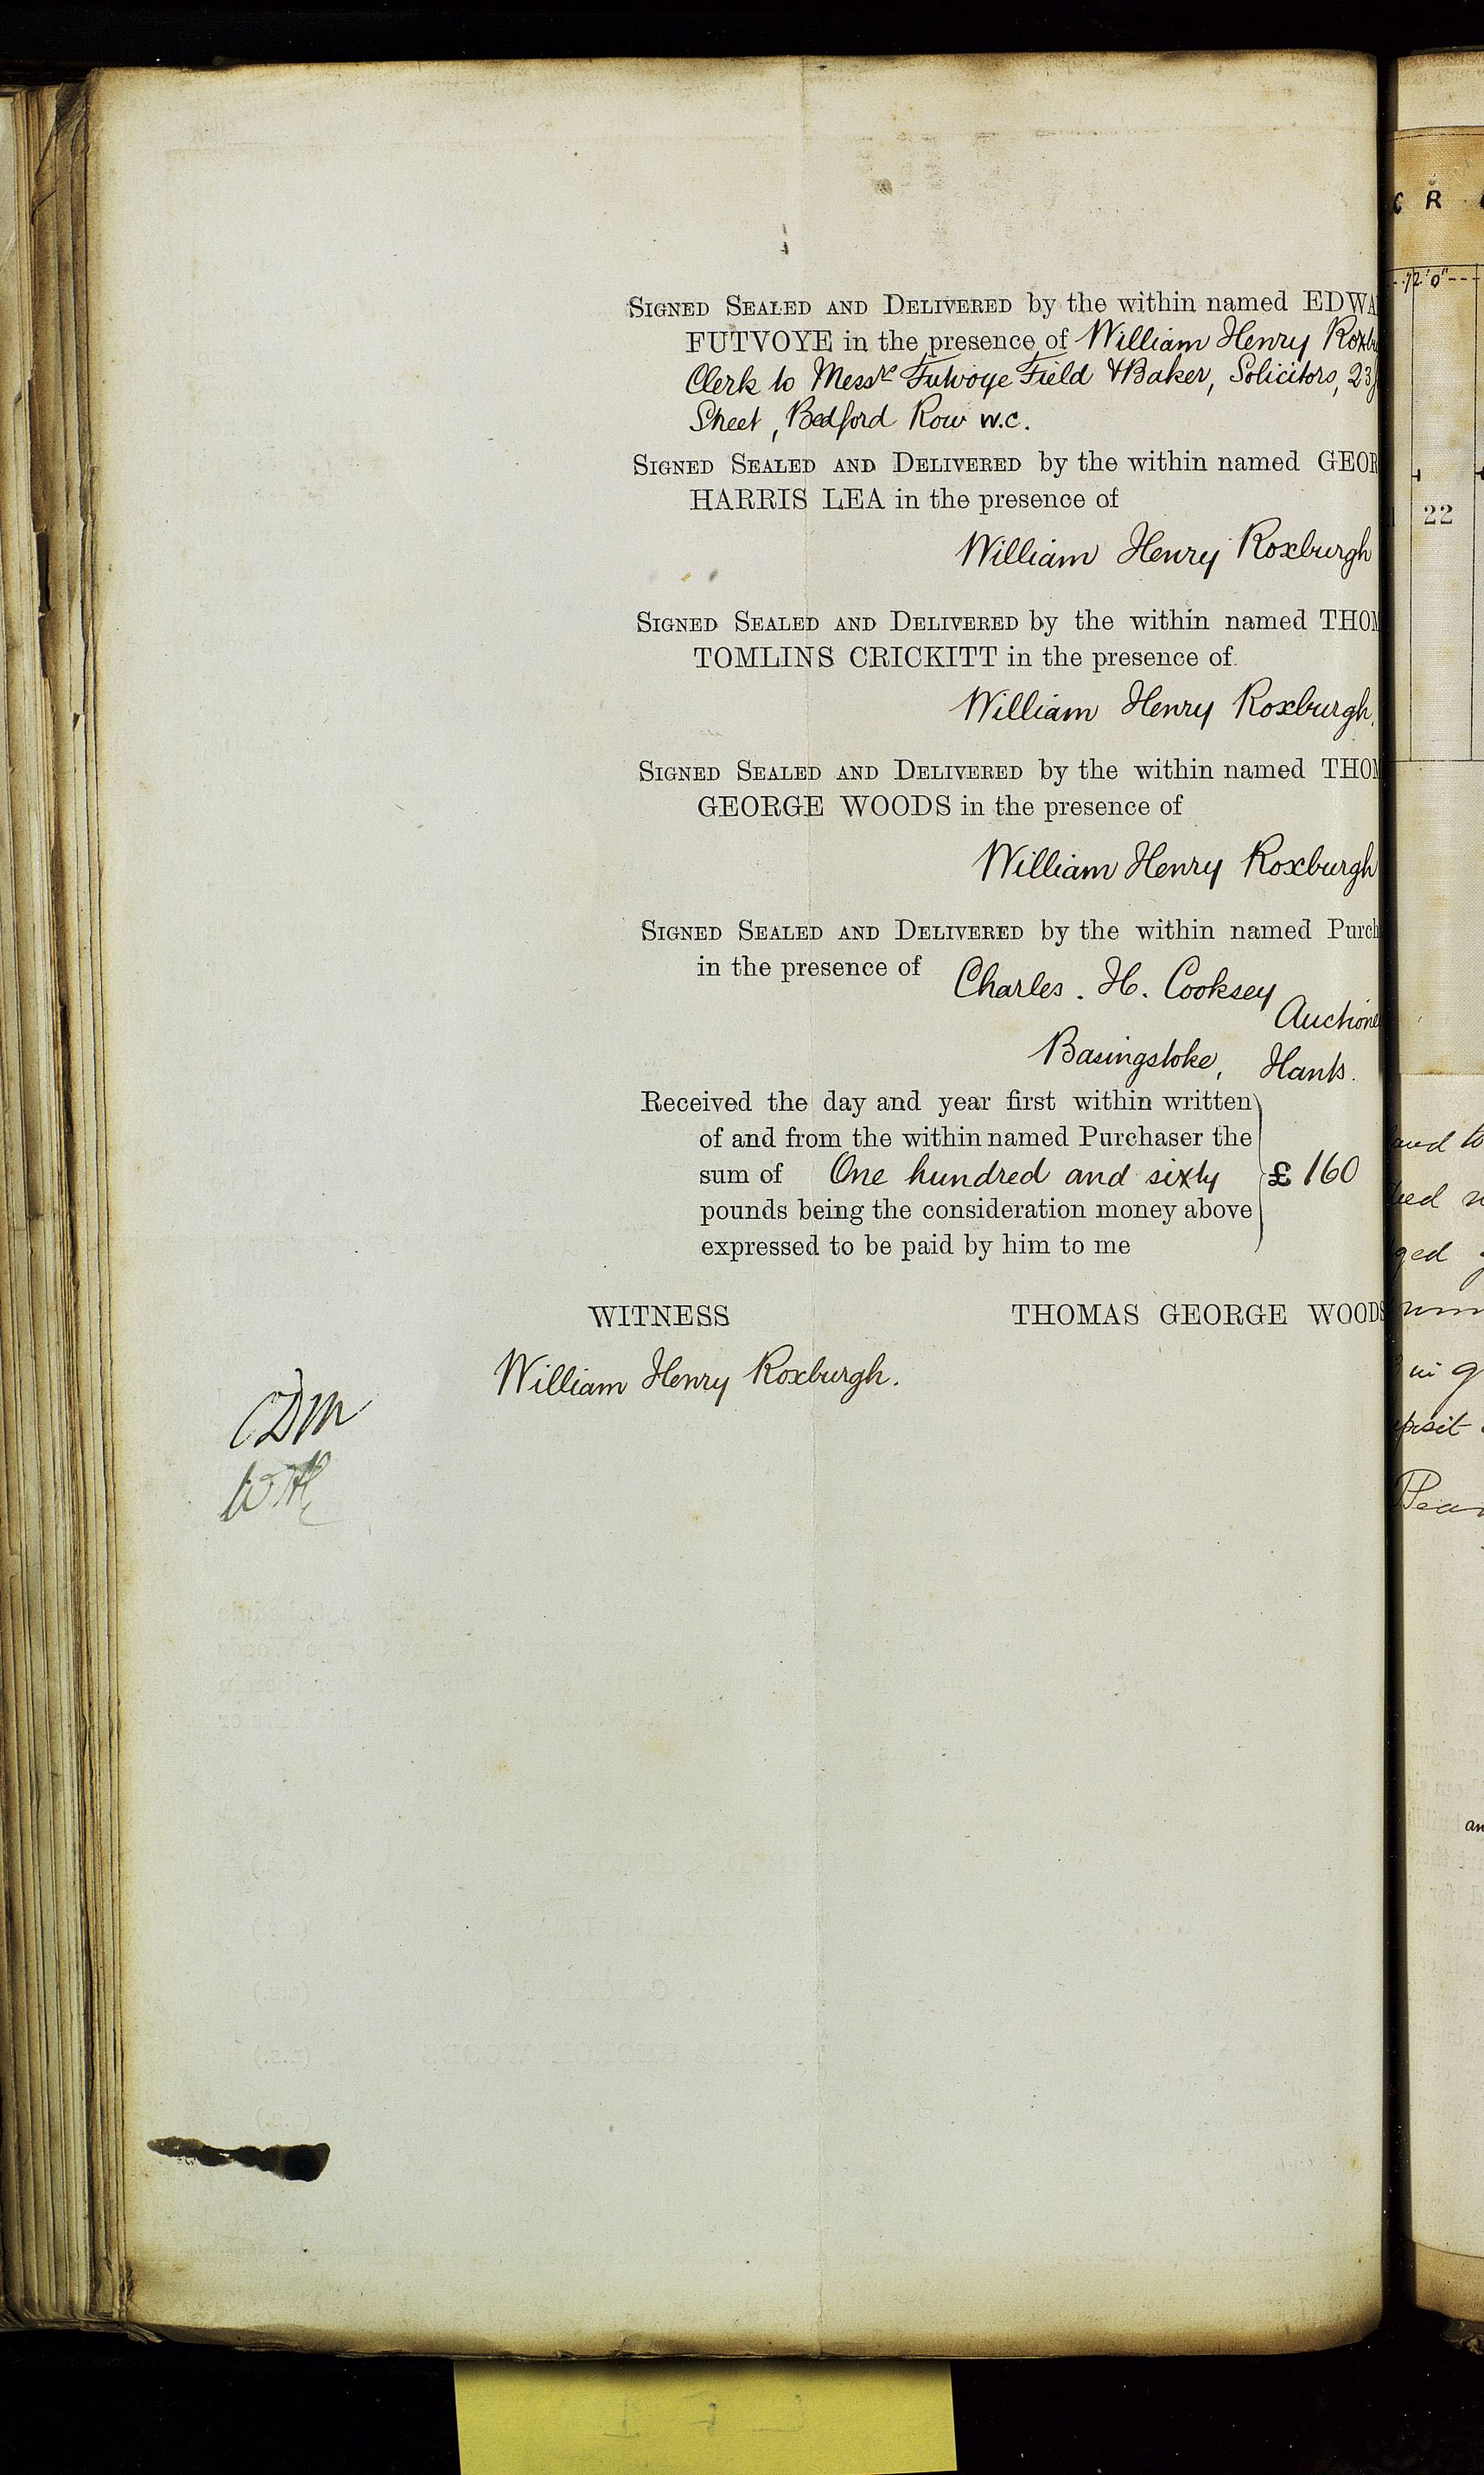 SIGNED SEALED AND DELIVERED by the within named EDWA
FUTVOYE in the presence of William Henry Roxbu
Clerk to Messrs Futvoye Field & Baker, Solicitors, 23
Street, Bedford Row W.C.
SIGNED SEALED AND DELIVERED by the within named GEOR
HARRIS LEA in the presence of
William Henry Roxburgh
SIGNED SEALED AND DELIVERED by the within named THOM
TOMLINS CRICKITT in the presence of
William Henry Roxburgh.
SIGNED SEALED AND DELIVERED by the within named THOM
GEORGE WOODS in the presence of
William Henry Roxburgh
SIGNED SEALED AND DELIVERED by the within named Purch
in the presence of Charles. H. Cooksey
Auctione
Basingstoke, Hants.
Received the day and year first within written
of and from the within named Purchaser the
sum of One hundred and sixty £160
pounds being the consideration money above
expressed to be paid by him to me
WITNESS THOMAS GEORGE WOODS
William Henry Roxburgh.
C R
12'0"
22
and to
ged
in g
Pea
an